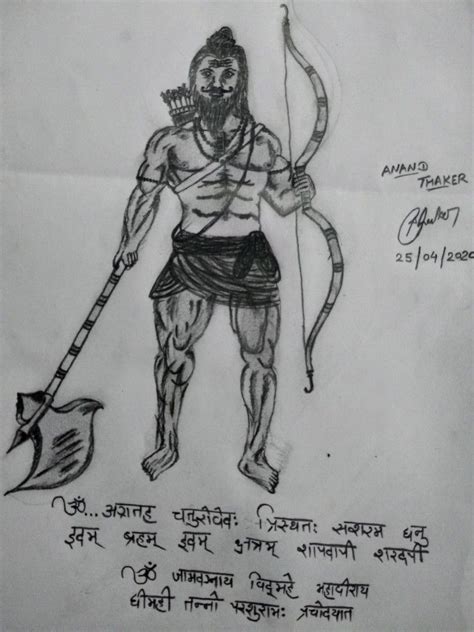 ANAND
THAKER
25/04/2020
ॐ... अग्रतह चतुरोवेदः त्रिस्थतः सक्शरम धनु
इदम् ब्रहम् इदम् क्षत्रम् शापदापी शरदपी
ॐ जामदग्नाय विद्महे महावीराय
धीमही तन्नो परशुरामः प्रचोदयात